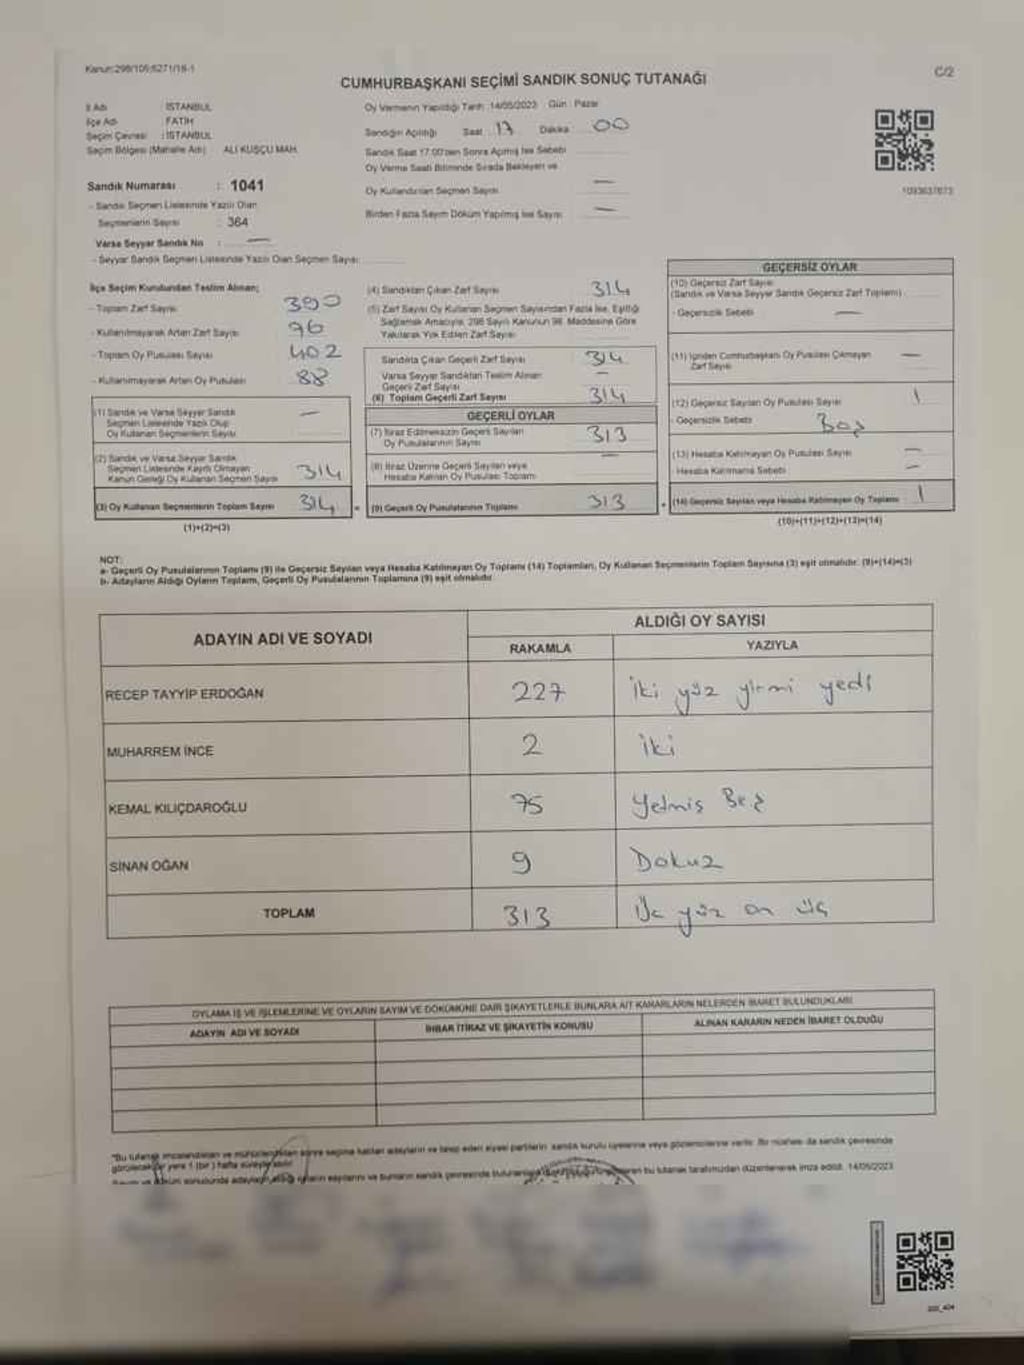 Kanun:298/105;6271/18-1
C/2
CUMHURBAŞKANI SEÇİMİ SANDIK SONUÇ TUTANAĞI
İl Adı İSTANBUL
İlçe Adı FATİH
Seçim Çevresi : İSTANBUL
Seçim Bölgesi (Mahalle Adı) ALİ KUŞÇU MAH.
Sandık Numarası : 1041
- Sandık Seçmen Listesinde Yazılı Olan
Seçmenlerin Sayısı : 364
Varsa Seyyar Sandık No : —
- Seyyar Sandık Seçmen Listesinde Yazılı Olan Seçmen Sayısı
Oy Vermenin Yapıldığı Tarih :14/05/2023 Gün : Pazar
Sandığın Açıldığı Saat 17 Dakika 00
Sandık Saat 17:00'den Sonra Açılmış İse Sebebi
Oy Verme Saati Bitiminde Sırada Bekleyen ve
Oy Kullandırılan Seçmen Sayısı —
Birden Fazla Sayım Döküm Yapılmış İse Sayısı —
1093637673
İlçe Seçim Kurulundan Teslim Alınan;
- Toplam Zarf Sayısı 390
- Kullanılmayarak Artan Zarf Sayısı 96
- Toplam Oy Pusulası Sayısı 402
- Kullanılmayarak Artan Oy Pusulası 88
(1) Sandık ve Varsa Seyyar Sandık
Seçmen Listesinde Yazılı Olup
Oy Kullanan Seçmenlerin Sayısı —
(2) Sandık ve Varsa Seyyar Sandık
Seçmen Listesinde Kayıtlı Olmayan
Kanun Gereği Oy Kullanan Seçmen Sayısı 314
(3) Oy Kullanan Seçmenlerin Toplam Sayısı 314
(1)+(2)=(3)
(4) Sandıktan Çıkan Zarf Sayısı 314
(5) Zarf Sayısı Oy Kullanan Seçmen Sayısından Fazla İse, Eşitliği
Sağlamak Amacıyla, 298 Sayılı Kanunun 98. Maddesine Göre
Yakılarak Yok Edilen Zarf Sayısı
Sandıkta Çıkan Geçerli Zarf Sayısı 314
Varsa Seyyar Sandıktan Teslim Alınan
Geçerli Zarf Sayısı —
(6) Toplam Geçerli Zarf Sayısı 314
GEÇERLİ OYLAR
(7) İtiraz Edilmeksizin Geçerli Sayılan
Oy Pusulalarının Sayısı 313
(8) İtiraz Üzerine Geçerli Sayılan veya
Hesaba Katılan Oy Pusulası Toplamı —
(9) Geçerli Oy Pusulalarının Toplamı 313
GEÇERSİZ OYLAR
(10) Geçersiz Zarf Sayısı
(Sandık ve Varsa Seyyar Sandık Geçersiz Zarf Toplamı)
- Geçersizlik Sebebi —
(11) İçinden Cumhurbaşkanı Oy Pusulası Çıkmayan
Zarf Sayısı —
(12) Geçersiz Sayılan Oy Pusulası Sayısı 1
- Geçersizlik Sebebi Boş
(13) Hesaba Katılmayan Oy Pusulası Sayısı —
- Hesaba Katılmama Sebebi —
(14) Geçersiz Sayılan veya Hesaba Katılmayan Oy Toplamı 1
(10)+(11)+(12)+(13)=(14)
NOT:
a- Geçerli Oy Pusulalarının Toplamı (9) ile Geçersiz Sayılan veya Hesaba Katılmayan Oy Toplamı (14) Toplamları, Oy Kullanan Seçmenlerin Toplam Sayısına (3) eşit olmalıdır. (9)+(14)=(3)
b- Adayların Aldığı Oyların Toplamı, Geçerli Oy Pusulalarının Toplamına (9) eşit olmalıdır.
ADAYIN ADI VE SOYADI ALDIĞI OY SAYISI
RAKAMLA YAZIYLA
RECEP TAYYİP ERDOĞAN 227 iki yüz yirmi yedi
MUHARREM İNCE 2 iki
KEMAL KILIÇDAROĞLU 75 Yetmiş Beş
SİNAN OĞAN 9 Dokuz
TOPLAM 313 Üç yüz on üç
OYLAMA İŞ VE İŞLEMLERİNE VE OYLARIN SAYIM VE DÖKÜMÜNE DAİR ŞİKAYETLERLE BUNLARA AİT KARARLARIN NELERDEN İBARET BULUNDUKLARI
ADAYIN ADI VE SOYADI İHBAR İTİRAZ VE ŞİKAYETİN KONUSU ALINAN KARARIN NEDEN İBARET OLDUĞU
*Bu tutanak imzalandıktan ve mühürlendikten sonra seçime katılan adayların ve talep eden siyasi partilerin sandık kurulu üyelerine veya gözlemcilerine verilir. Bir nüshası da sandık çevresinde
görülecek bir yere 1 (bir) hafta süreyle asılır.
Sayım ve döküm sonucunda adayların aldığı oyların sayılarını ve bunların sandık çevresinde bu tutanak tarafımızdan düzenlenerek imza edildi. 14/05/2023